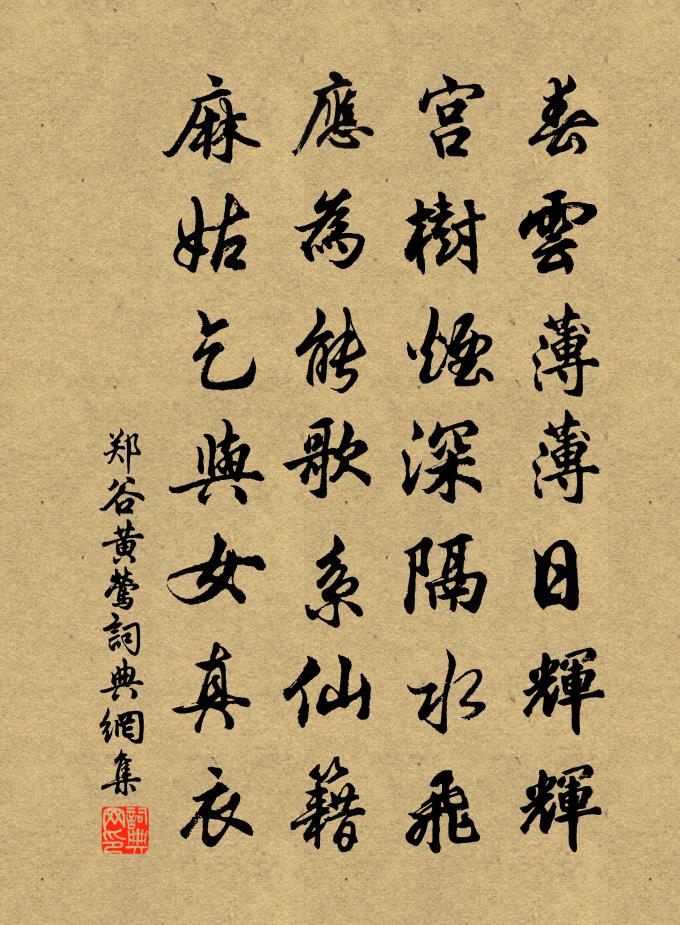 春雲薄薄日輝輝
宮樹煙深隔水飛
應為能歌系仙籍
麻姑乞與女真衣
郑谷黄莺詞典網集
詞典网印